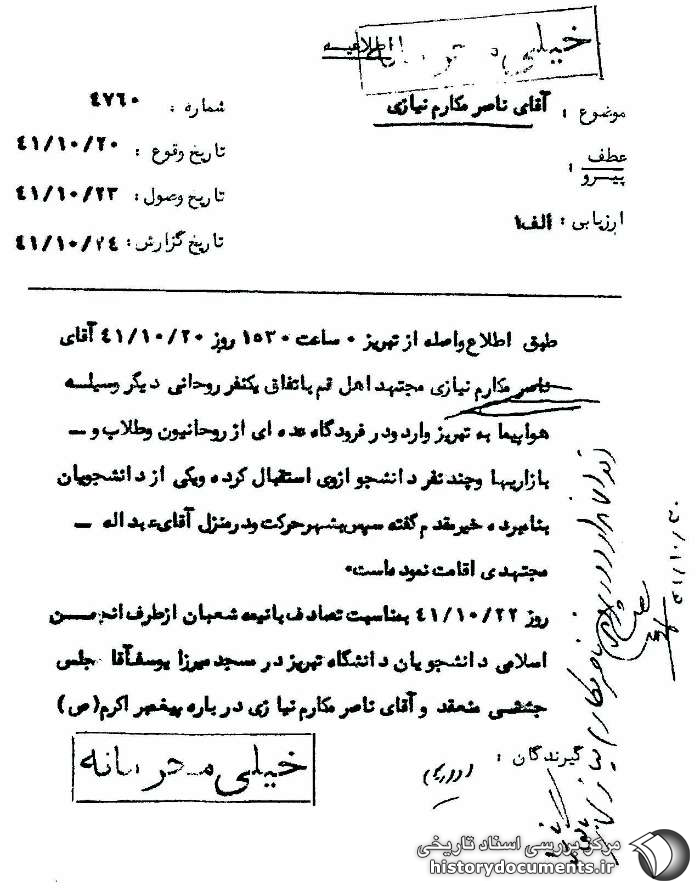 خیلی محرمانه
اطلاعیه
موضوع : آقای ناصر مکارم نیازی
شماره : ٤٧٦٠
عطف
پیرو :
تاریخ وقوع : ٤١/١٠/٢٠
تاریخ وصول : ٤١/١٠/٢٣
ارزیابی : الف١
تاریخ گزارش : ٤١/١٠/٢٤
طبق اطلاع واصله از تبریز ٠ ساعت ١٥٣٠ روز ٤١/١٠/٢٠ آقای
ناصر مکارم نیازی مجتهد اهل قم باتفاق یکنفر روحانی دیگر وسیله
هواپیما به تبریز وارد ودر فرودگاه عده ای از روحانیون وطلاب و ـ
بازاریها وچند نفر دانشجو ازوی استقبال کرده ویکی از دانشجویان
بنامبرده خیرمقدم گفته سپس بشهر حرکت ودرمنزل آقای عبداله ـ
مجتهدی اقامت نموده است٠
روز ٤١/١٠/٢٢ بمناسبت تصادف بانیمه شعبان ازطرف انجمن
اسلامی دانشجویان دانشگاه تبریز در مسجد میرزا یوسف آقا مجلس
جشنی منعقد و آقای ناصر مکارم نیازی درباره پیغمبر اکرم (ص)
گیرندگان :
خیلی محرمانه
٤١/١٠/٣٠
مرکز بررسی اسناد تاریخی
historydocuments.ir